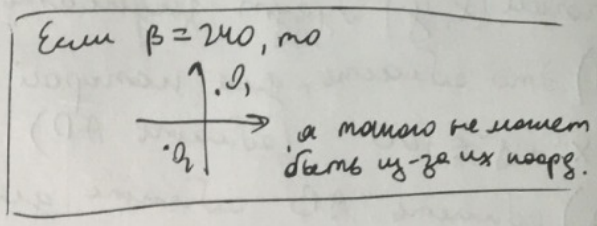 Если β = 240, то
.O₁
.O₂
, а такого не может
быть из-за их коорд.